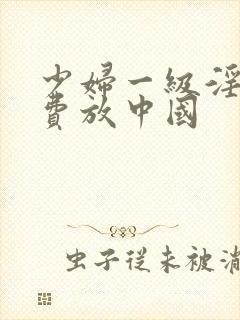 少婦一級淫
費放中國
虫子從未被消